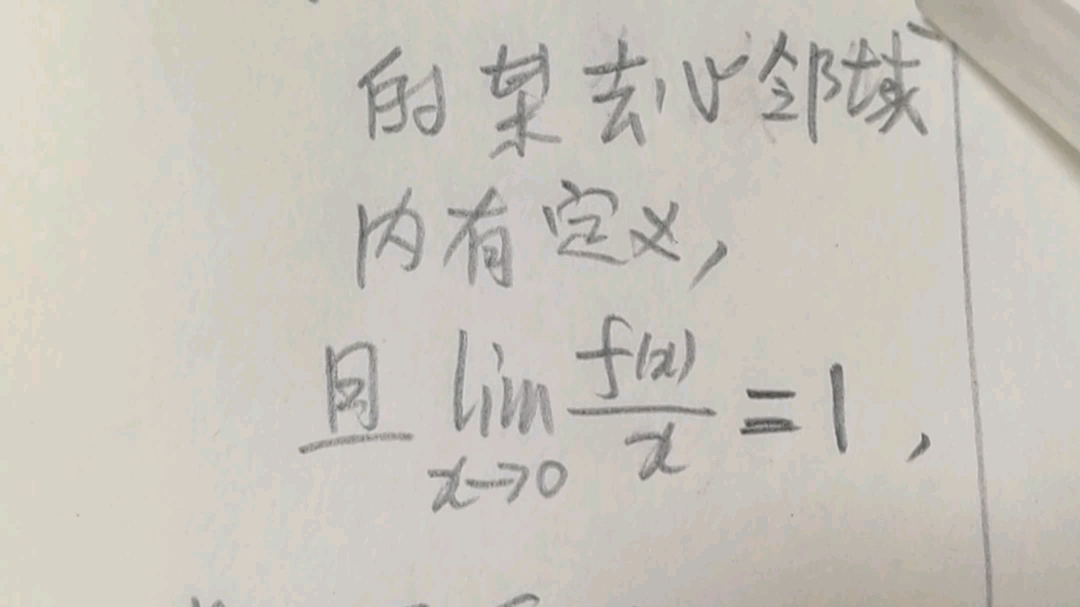 的某去心邻域
内有定义,
且 lim_{x→0} f(x)/x = 1,